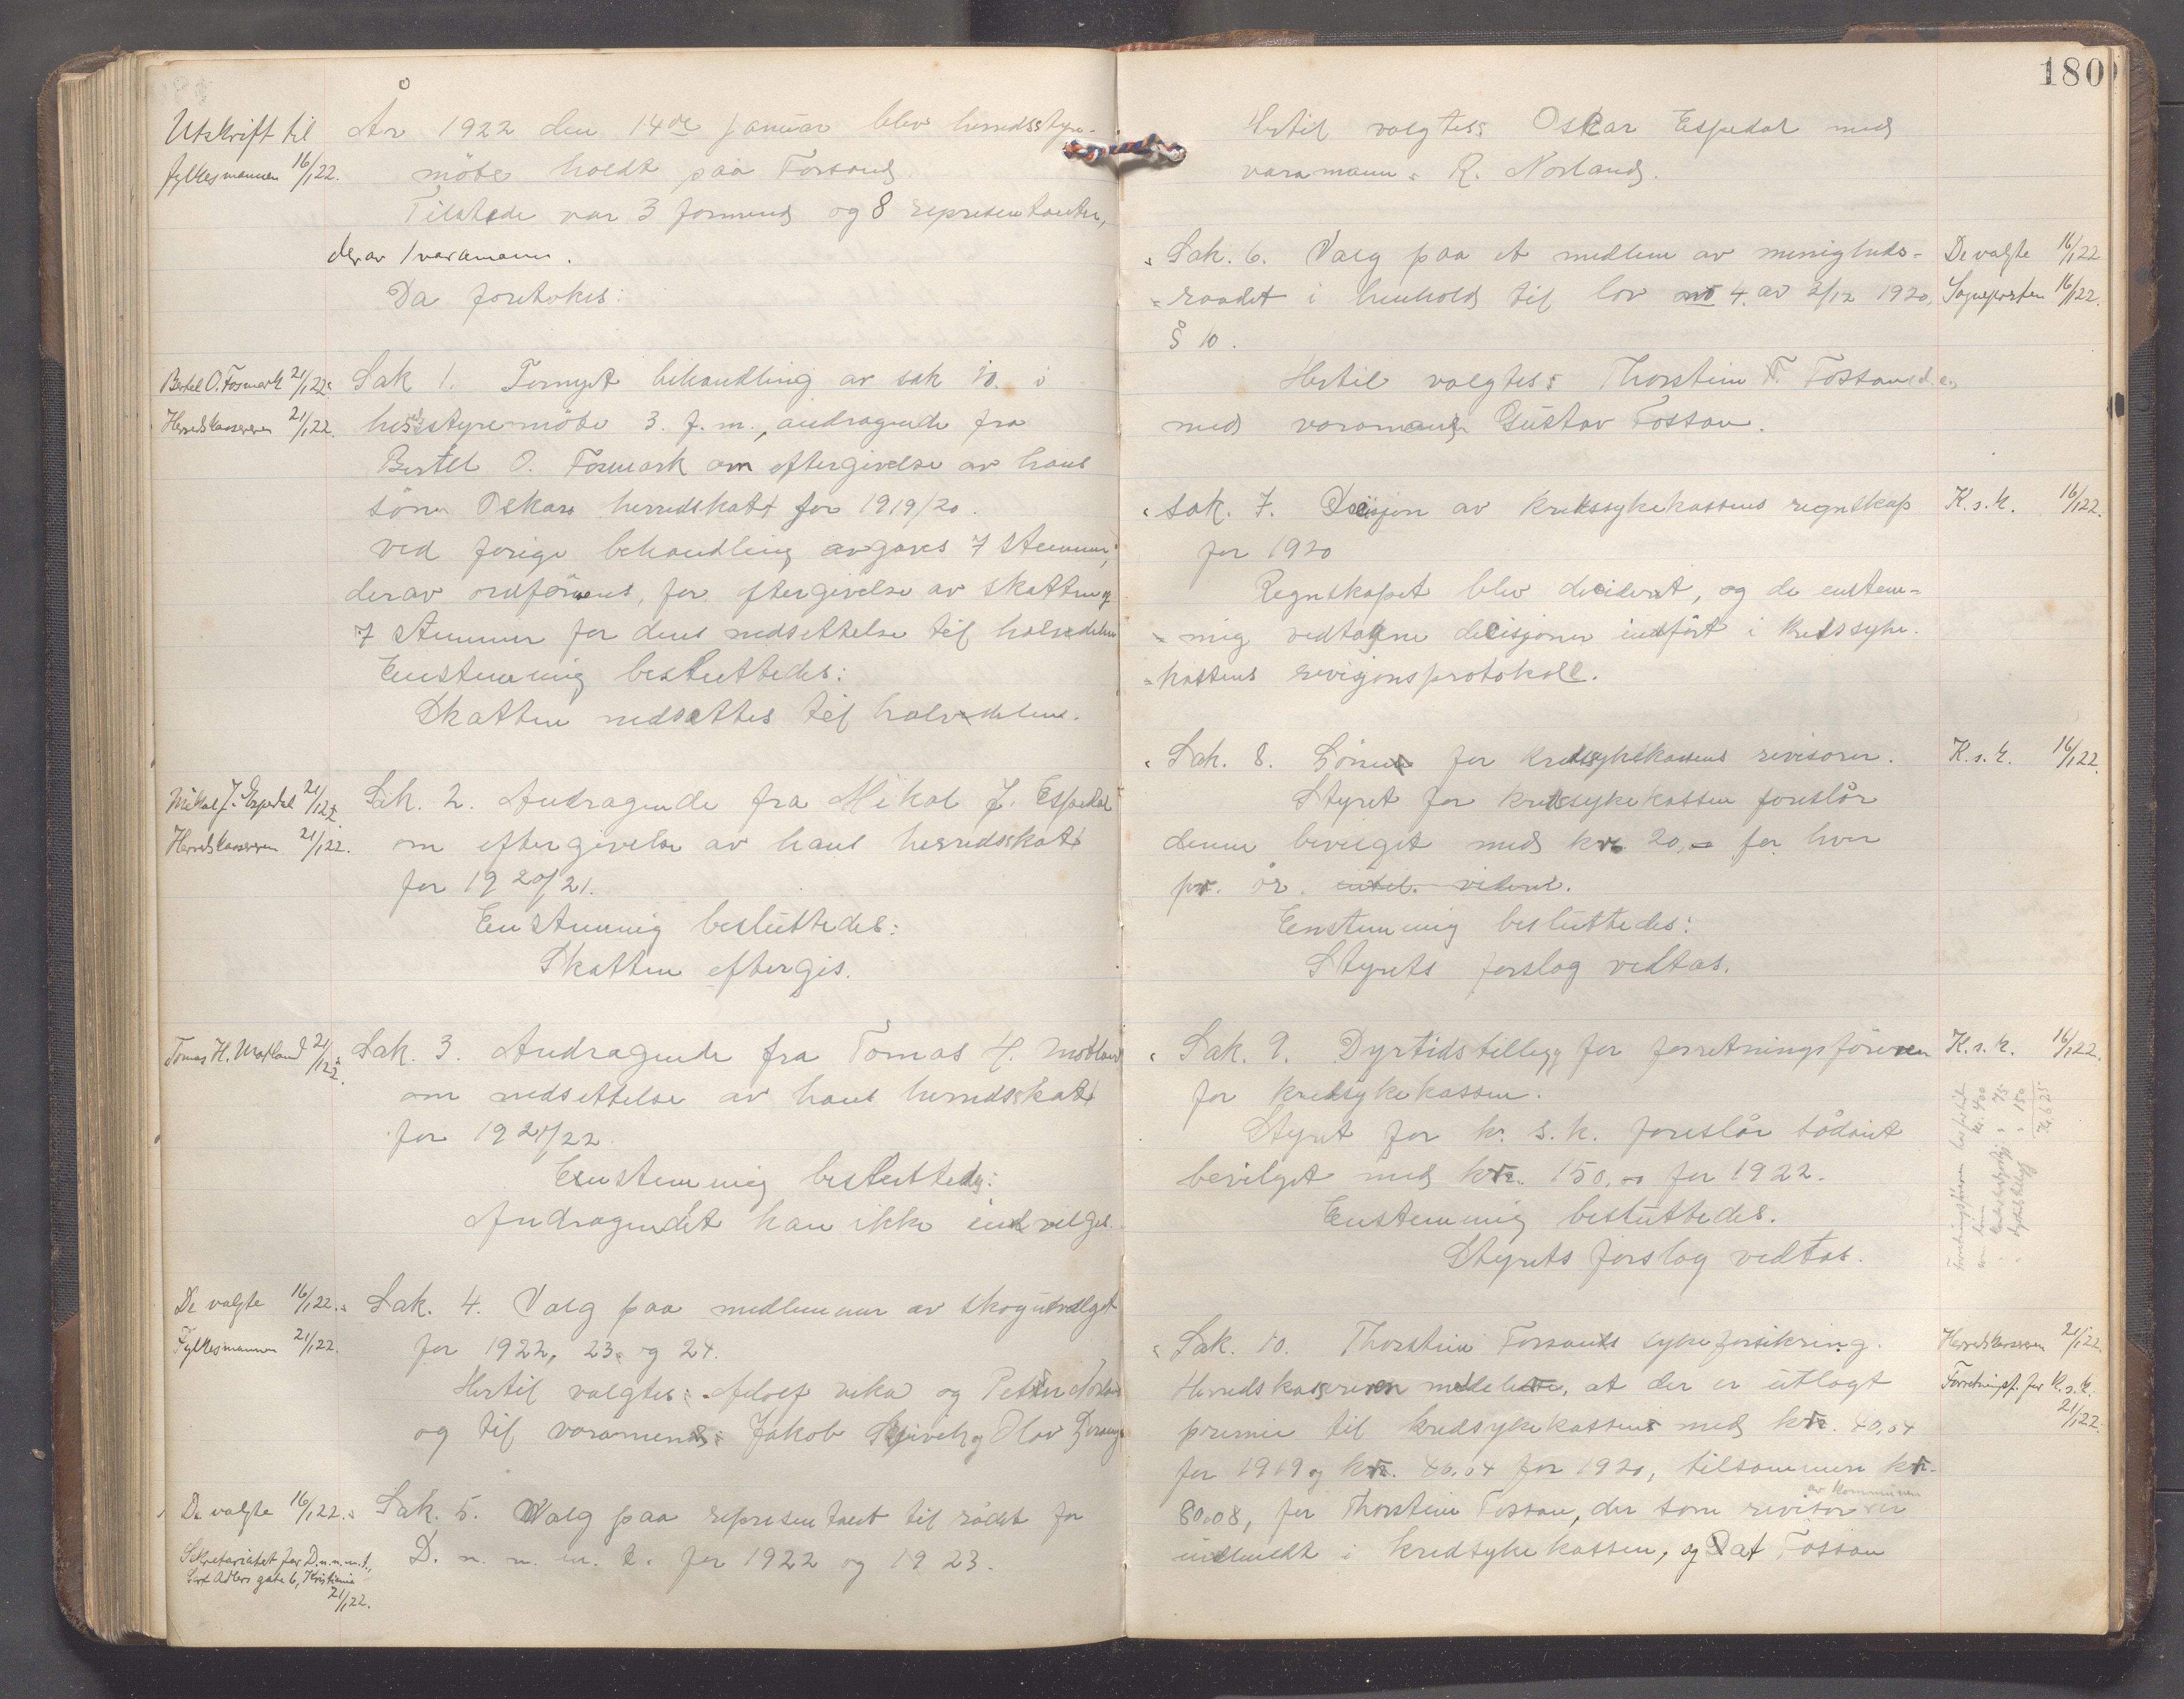 180
Utskrift til
fylkesmannen 16/1 22.
År 1922 den 14de januar blev herredsstyre-
möte holdt paa Forsand.
Tilstede var 3 formend og 8 representanter,
derav 1 varamann.
Da foretokes:
Bertel O. Fosmark 21/1 22.
Herredskassereren 21/1 22.
Sak 1. Fornyet behandling av sak 10. i
herredsstyremöte 3. f. m., andragende fra
Bertel O. Fosmark om eftergivelse av hans
sön Oskars herredskatt for 1919/20.
Ved forige behandling avgaves 7 stemmer,
derav ordförerens, for eftergivelse av skatten og
7 stemmer for dens nedsettelse til halvdelen
Enstemmig besluttedes:
Skatten nedsettes til halvdelen.
Mikal J. Espedal 21/1 22
Herredskassereren 21/1 22.
Sak. 2. Andragende fra Mikal J. Espedal
om eftergivelse av hans herredsskatt
for 1920/21.
Enstemmig besluttedes:
Skatten eftergis.
Tomas H. Motland 21/1 22.
Sak. 3. Andragende fra Tomas H. Motland
om nedsettelse av hans herredsskatt
for 1921/22.
Enstemmig besluttedes:
Andragendet kan ikke indvilges.
De valgte 16/1 22.
Fylkesmannen 21/1 22.
Sak. 4. Valg paa medlemmer av skogutvalget
for 1922, 23 og 24.
Hertil valgtes: Adolf Meka og Petter Norland
og til varamend: Jakob og Olav
De valgte 16/1 22.
Sekretariatet for D.n.n.m.t.,
gate 6, Kristiania
21/1 22.
Sak. 5. Valg paa representant til rådet for
D. n. n. m. t. for 1922 og 1923.
Hertil valgtes Oskar Espedal med
varamann R. Norland.
Sak. 6. Valg paa et medlem av menigheds-
raadet i henhold til lov nö 4. av 2/12 1920,
§ 10.
De valgte 16/1 22
Sognepresten 16/1 22.
Hertil valgtes: Thorstein T. Fossan d.e.
med varamand Gustav Fossan.
Sak. 7. Decisjon av kretssykekassens regnskap
for 1920
K.s.k. 16/1 22.
Regnskapet blev decidert, og de enstem-
mig vedtagne decisjoner indfört i kretssyke-
kassens revisjonsprotokoll.
Sak. 8. Lönnen for kretssykekassens revisorer.
K.s.k. 16/1 22.
Styret for kretssykekassen foreslår
denne bevilget med kr. 20,- for hver
pr. år. indtil videre.
Enstemmig besluttedes:
Styrets forslag vedtas.
Sak. 9. Dyrtidstillegg for forretningsföreren
for kretsykekassen.
K.s.k. 16/1 22.
Styret for kr. s. k. foreslår sådant
bevilget med kr. 150,00 for 1922.
Enstemmig besluttedes.
Styrets forslag vedtas.
Forretningsföreren
kr. 400
75
dyrtidstillegg 150
Kr. 625
Sak. 10. Thorstein Forsands sykeforsikring.
Herredskassereren 21/1 22.
Forretningsf. for K.s.k.
21/1 22.
Herredskassereren meddeler, at der er utlagt
premie til kredsykekassen med kr. 40,04
for 1919 og kr. 40.04 for 1920, tilsammen kr.
80.08, for Thorstein Fossan, der som revisor av kommunen er
indmeldt i kredsykekassen, og at Fossan